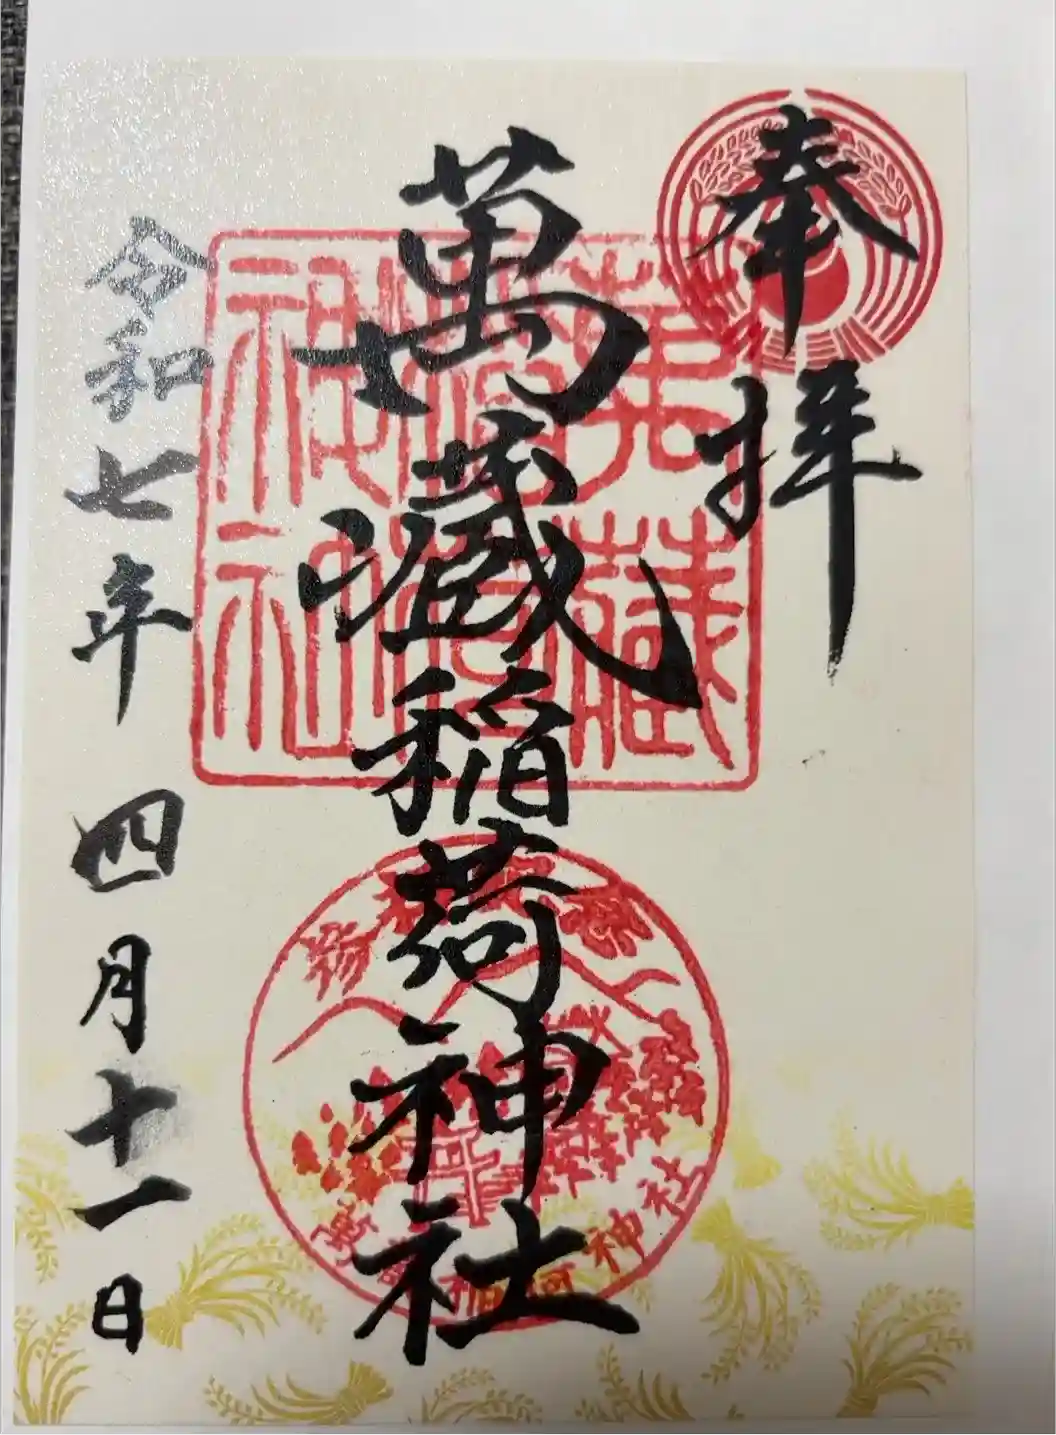 奉拝
萬蔵稲荷神社
令和七年 四月十一日
萬蔵
稲荷
神社
萬蔵稲荷神社